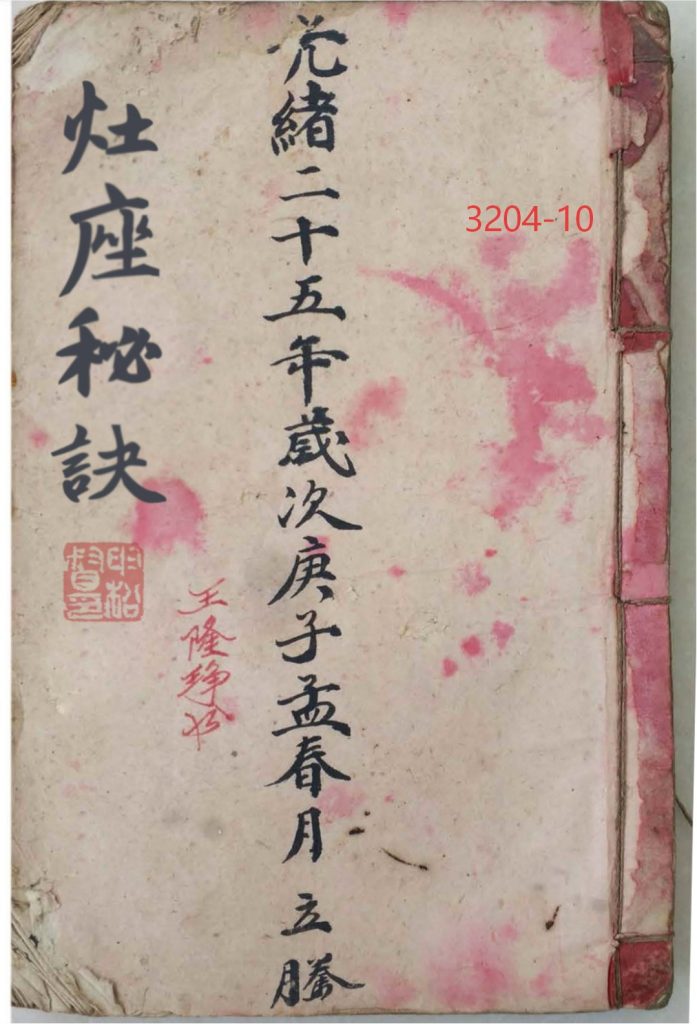 3204-10
光緒二十五年歲次庚子孟春月 立謄
王隆
灶座秘訣